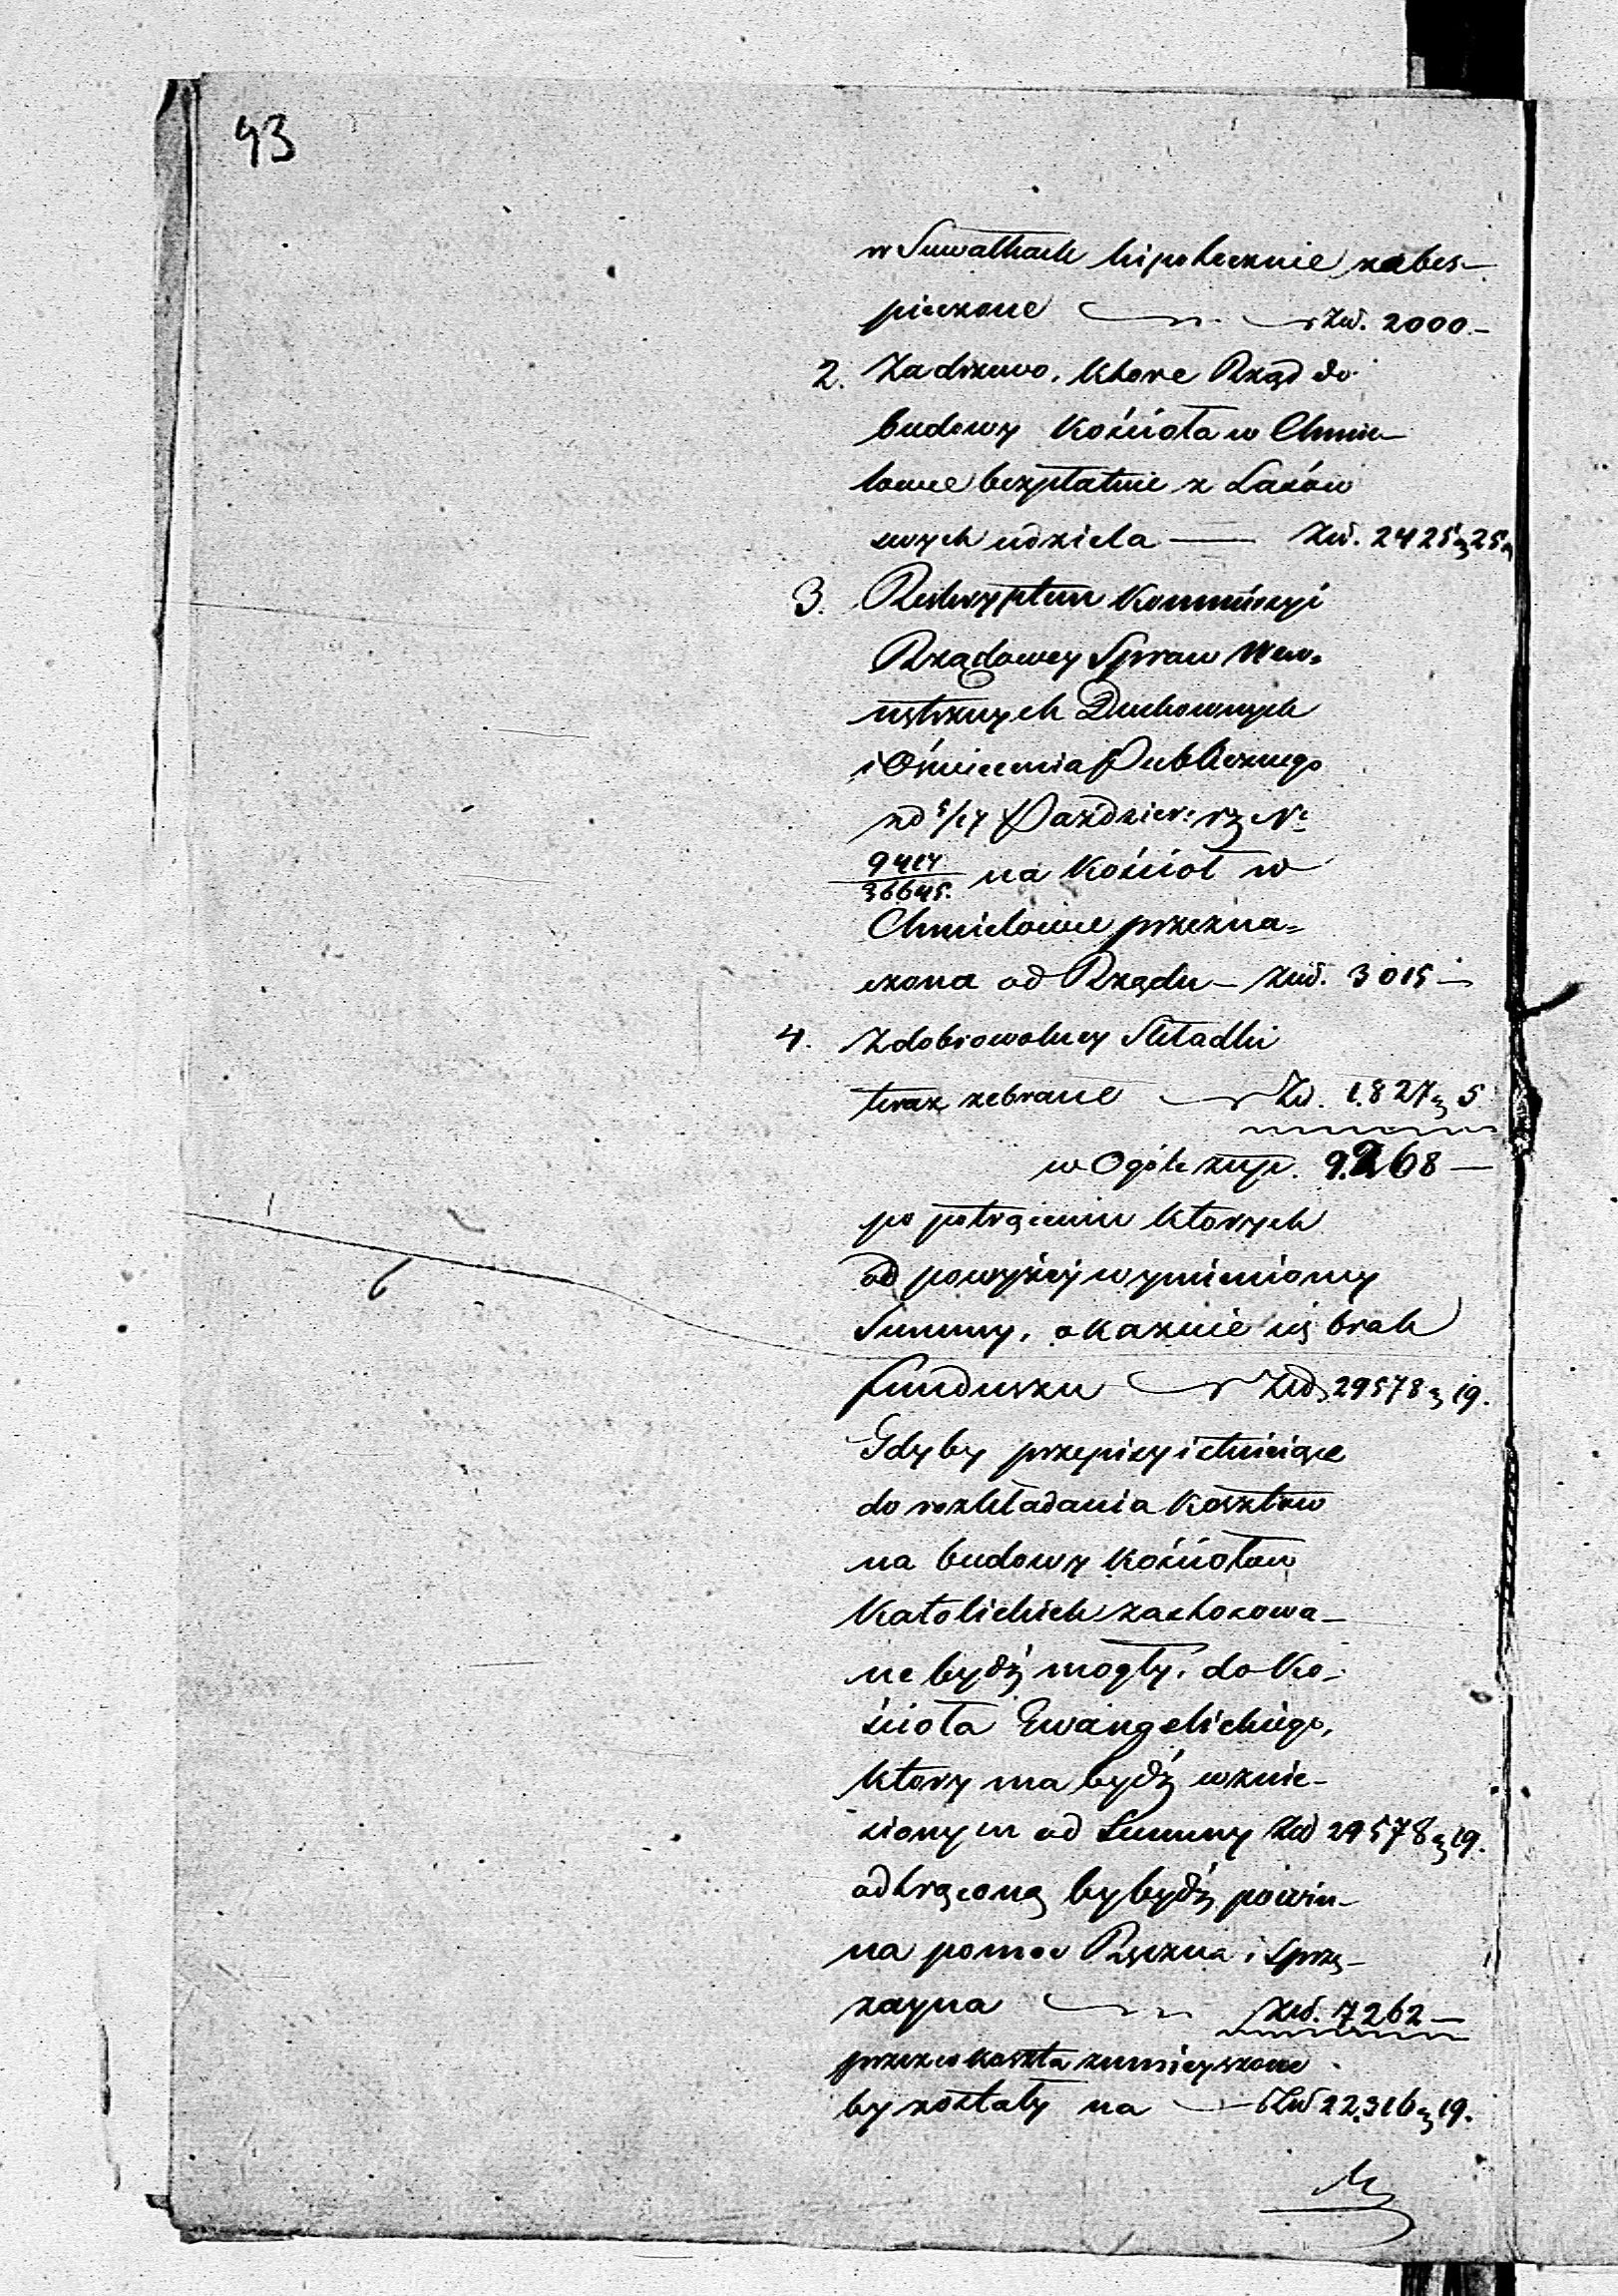 93
w Suwałkach hipotecznie zabes-
pieczone Złd. 2000.-
2. Za drzewo, ktore Rząd do
budowy Kościoła w Chmie-
lowce bezpłatnie z Lasów
swych udziela — Złd. 2425 g 25
3. Reskryptem Kommissyi
Rządowey Spraw Wew=
nętrznych Duchownych
i Oświecenia Publicznego
z d 5/17 Paździer: r z Nº
9417/36645. na Kościoł w
Chmielowce przezna=
czona od Rządu — złd. 3015 —
4. Z dobrowolney Składki
teraz zebrane Zł. 1.827 g 5
w Ogóle złp. 9.268 —
po potrąceniu ktorych
od powyżey wymienioney
Summy, okazuie się brak
funduszu Złd. 29578 g 19.
Gdyby przepisy istnieiące
do rozkładania Kosztow
na budowy Kościołow
Katolickich zachowa-
ne bydź mogły, do Ko-
ścioła Ewangelickiego,
ktory ma bydź wznie-
sionym od Summy Złd 29578 g 19.
odtrąconą by bydź powin-
na pomoc Ręczna i Sprzę-
żayna złd. 7262 —
przez co koszta zmnieyszone
by zostały na — Złd 22.316 g 19.